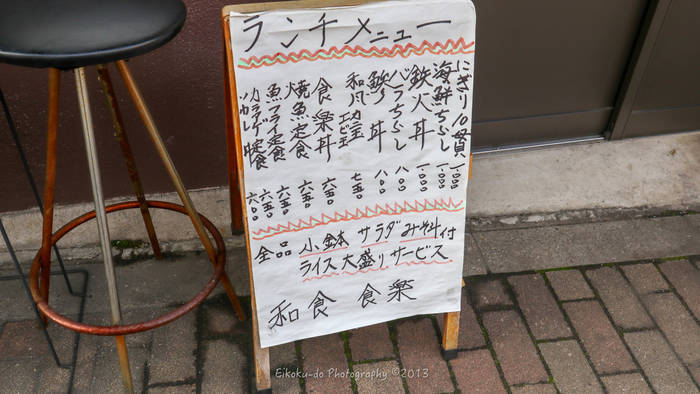 ランチメニュー
にぎり10貫 一.〇〇〇
海鮮ちらし 一.〇〇〇
鉄火丼 一.〇〇〇
バラちらし 八〇〇
丼 八〇〇
和風 七五〇
食楽丼 六五〇
焼魚定食 六五〇
魚フライ定食 六五〇
カラアゲ定食 六五〇
六〇〇
全品 小鉢 サラダ みそ汁付
ライス大盛りサービス
和食 食楽
Eikoku-do Photography ©2013